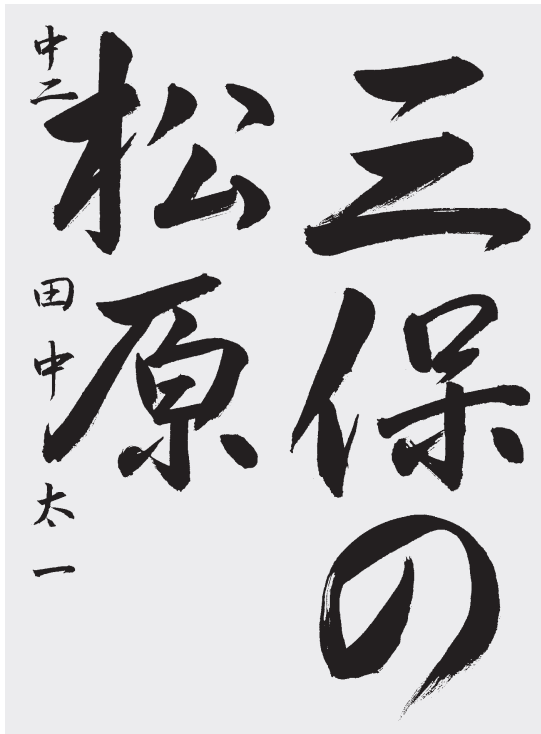 三保の
松原
中二 田中太一